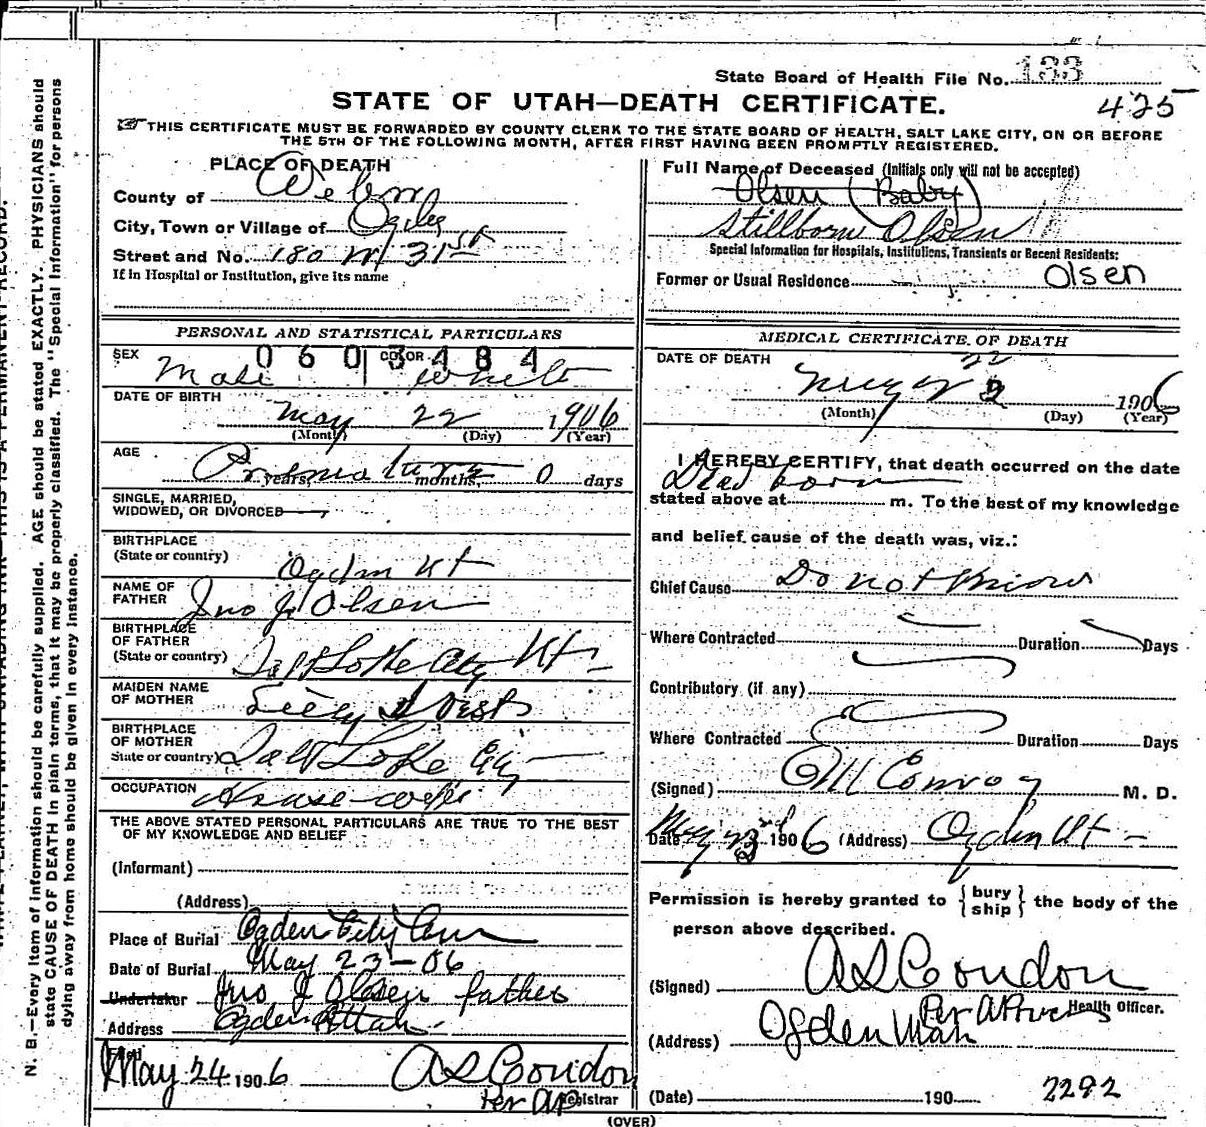 State Board of Health File No. 133
STATE OF UTAH—DEATH CERTIFICATE.
425
THIS CERTIFICATE MUST BE FORWARDED BY COUNTY CLERK TO THE STATE BOARD OF HEALTH, SALT LAKE CITY, ON OR BEFORE
THE 5TH OF THE FOLLOWING MONTH, AFTER FIRST HAVING BEEN PROMPTLY REGISTERED.
PLACE OF DEATH
County of Weber
City, Town or Village of Ogden
Street and No. 180 W 31st
If in Hospital or Institution, give its name
Full Name of Deceased (Initials only will not be accepted)
Olsen (Baby)
Stillborn Olsen
Special Information for Hospitals, Institutions, Transients or Recent Residents:
Former or Usual Residence Olsen
PERSONAL AND STATISTICAL PARTICULARS
0603484
SEX Male COLOR White
DATE OF BIRTH May 22 1906
(Month) (Day) (Year)
AGE Premature years, months, 0 days
SINGLE, MARRIED,
WIDOWED, OR DIVORCED
BIRTHPLACE
(State or country) Ogden Ut
NAME OF
FATHER Jno J Olsen
BIRTHPLACE
OF FATHER
(State or country) Salt Lake City Ut
MAIDEN NAME
OF MOTHER
BIRTHPLACE
OF MOTHER
State or country) Salt Lake City
OCCUPATION House-wife
THE ABOVE STATED PERSONAL PARTICULARS ARE TRUE TO THE BEST
OF MY KNOWLEDGE AND BELIEF
(Informant)
(Address)
Place of Burial Ogden City Cem
Date of Burial May 23-06
Undertaker Jno J Olsen father
Address Ogden Utah
Filed May 24 1906 A S Condon
Per AP Registrar
MEDICAL CERTIFICATE OF DEATH
DATE OF DEATH May 22 1906
(Month) (Day) (Year)
I HEREBY CERTIFY, that death occurred on the date
Dead born
stated above at m. To the best of my knowledge
and belief cause of the death was, viz.:
Chief Cause Do not know
Where Contracted Duration Days
Contributory (if any)
Where Contracted Duration Days
(Signed) Conroy M. D.
Date May 23rd 1906 (Address) Ogden Ut
Permission is hereby granted to {bury ship} the body of the
person above described.
(Signed) A S Condon
Per Health Officer.
(Address) Ogden Utah
(Date) 190 2292
(OVER)
N. B.—Every item of information should be carefully supplied. AGE should be stated EXACTLY. PHYSICIANS should
state CAUSE OF DEATH in plain terms, that it may be properly classified. The "Special Information" for persons
dying away from home should be given in every instance.